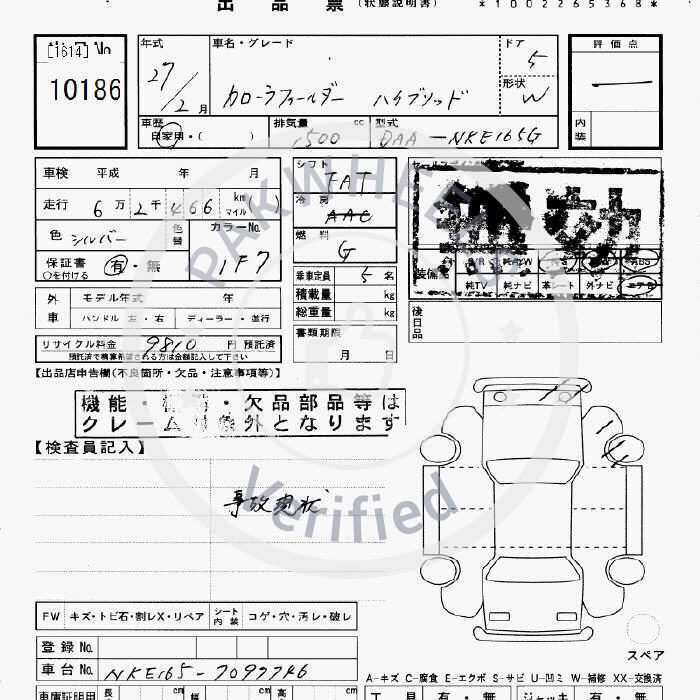 出品票 (状態説明書) *1002265368*
[1614] No
10186
年式 車名・グレード ドア 評価点
27/2月 カローラフィールダー ハイブリッド 5
形状 W
車歴 自家用・( ) 排気量 cc 型式 内装
1500 DAA-NKE165G
車検 平成 年 月 シフト FAT
走行 6万2千466 km マイル ( ) 冷房 AAC
色 シルバー 色替 カラーNo. 燃料 G
保証書 有・無 1F7
○を付ける
乗車定員 5名 装備 純TV 純ナビ 革シート 外ナビ
外車 モデル年式 年 積載量 kg
ハンドル 左・右 ディーラー・並行 総重量 kg
後日品
リサイクル料金 9810 円 預託済 書類期限
預託済で精算希望される方は金額記入して下さい 月 日
【出品店申告欄(不良箇所・欠品・注意事項等)】
機能・ ・欠品部品等は
クレーム対象外となります
【検査員記入】
事故現状
PAKWHEELS
Verified
FW キズ・トビ石・割レX・リペア シート内装 コゲ・穴・汚レ・破レ
登録No.
車台No. NKE165-7097746
スペア
A-キズ C-腐食 E-エクボ S-サビ U-凹ミ W-補修 XX-交換済
車庫証明用 長 cm 幅 cm 高 cm 工具 有・無 ジャッキ 有・無